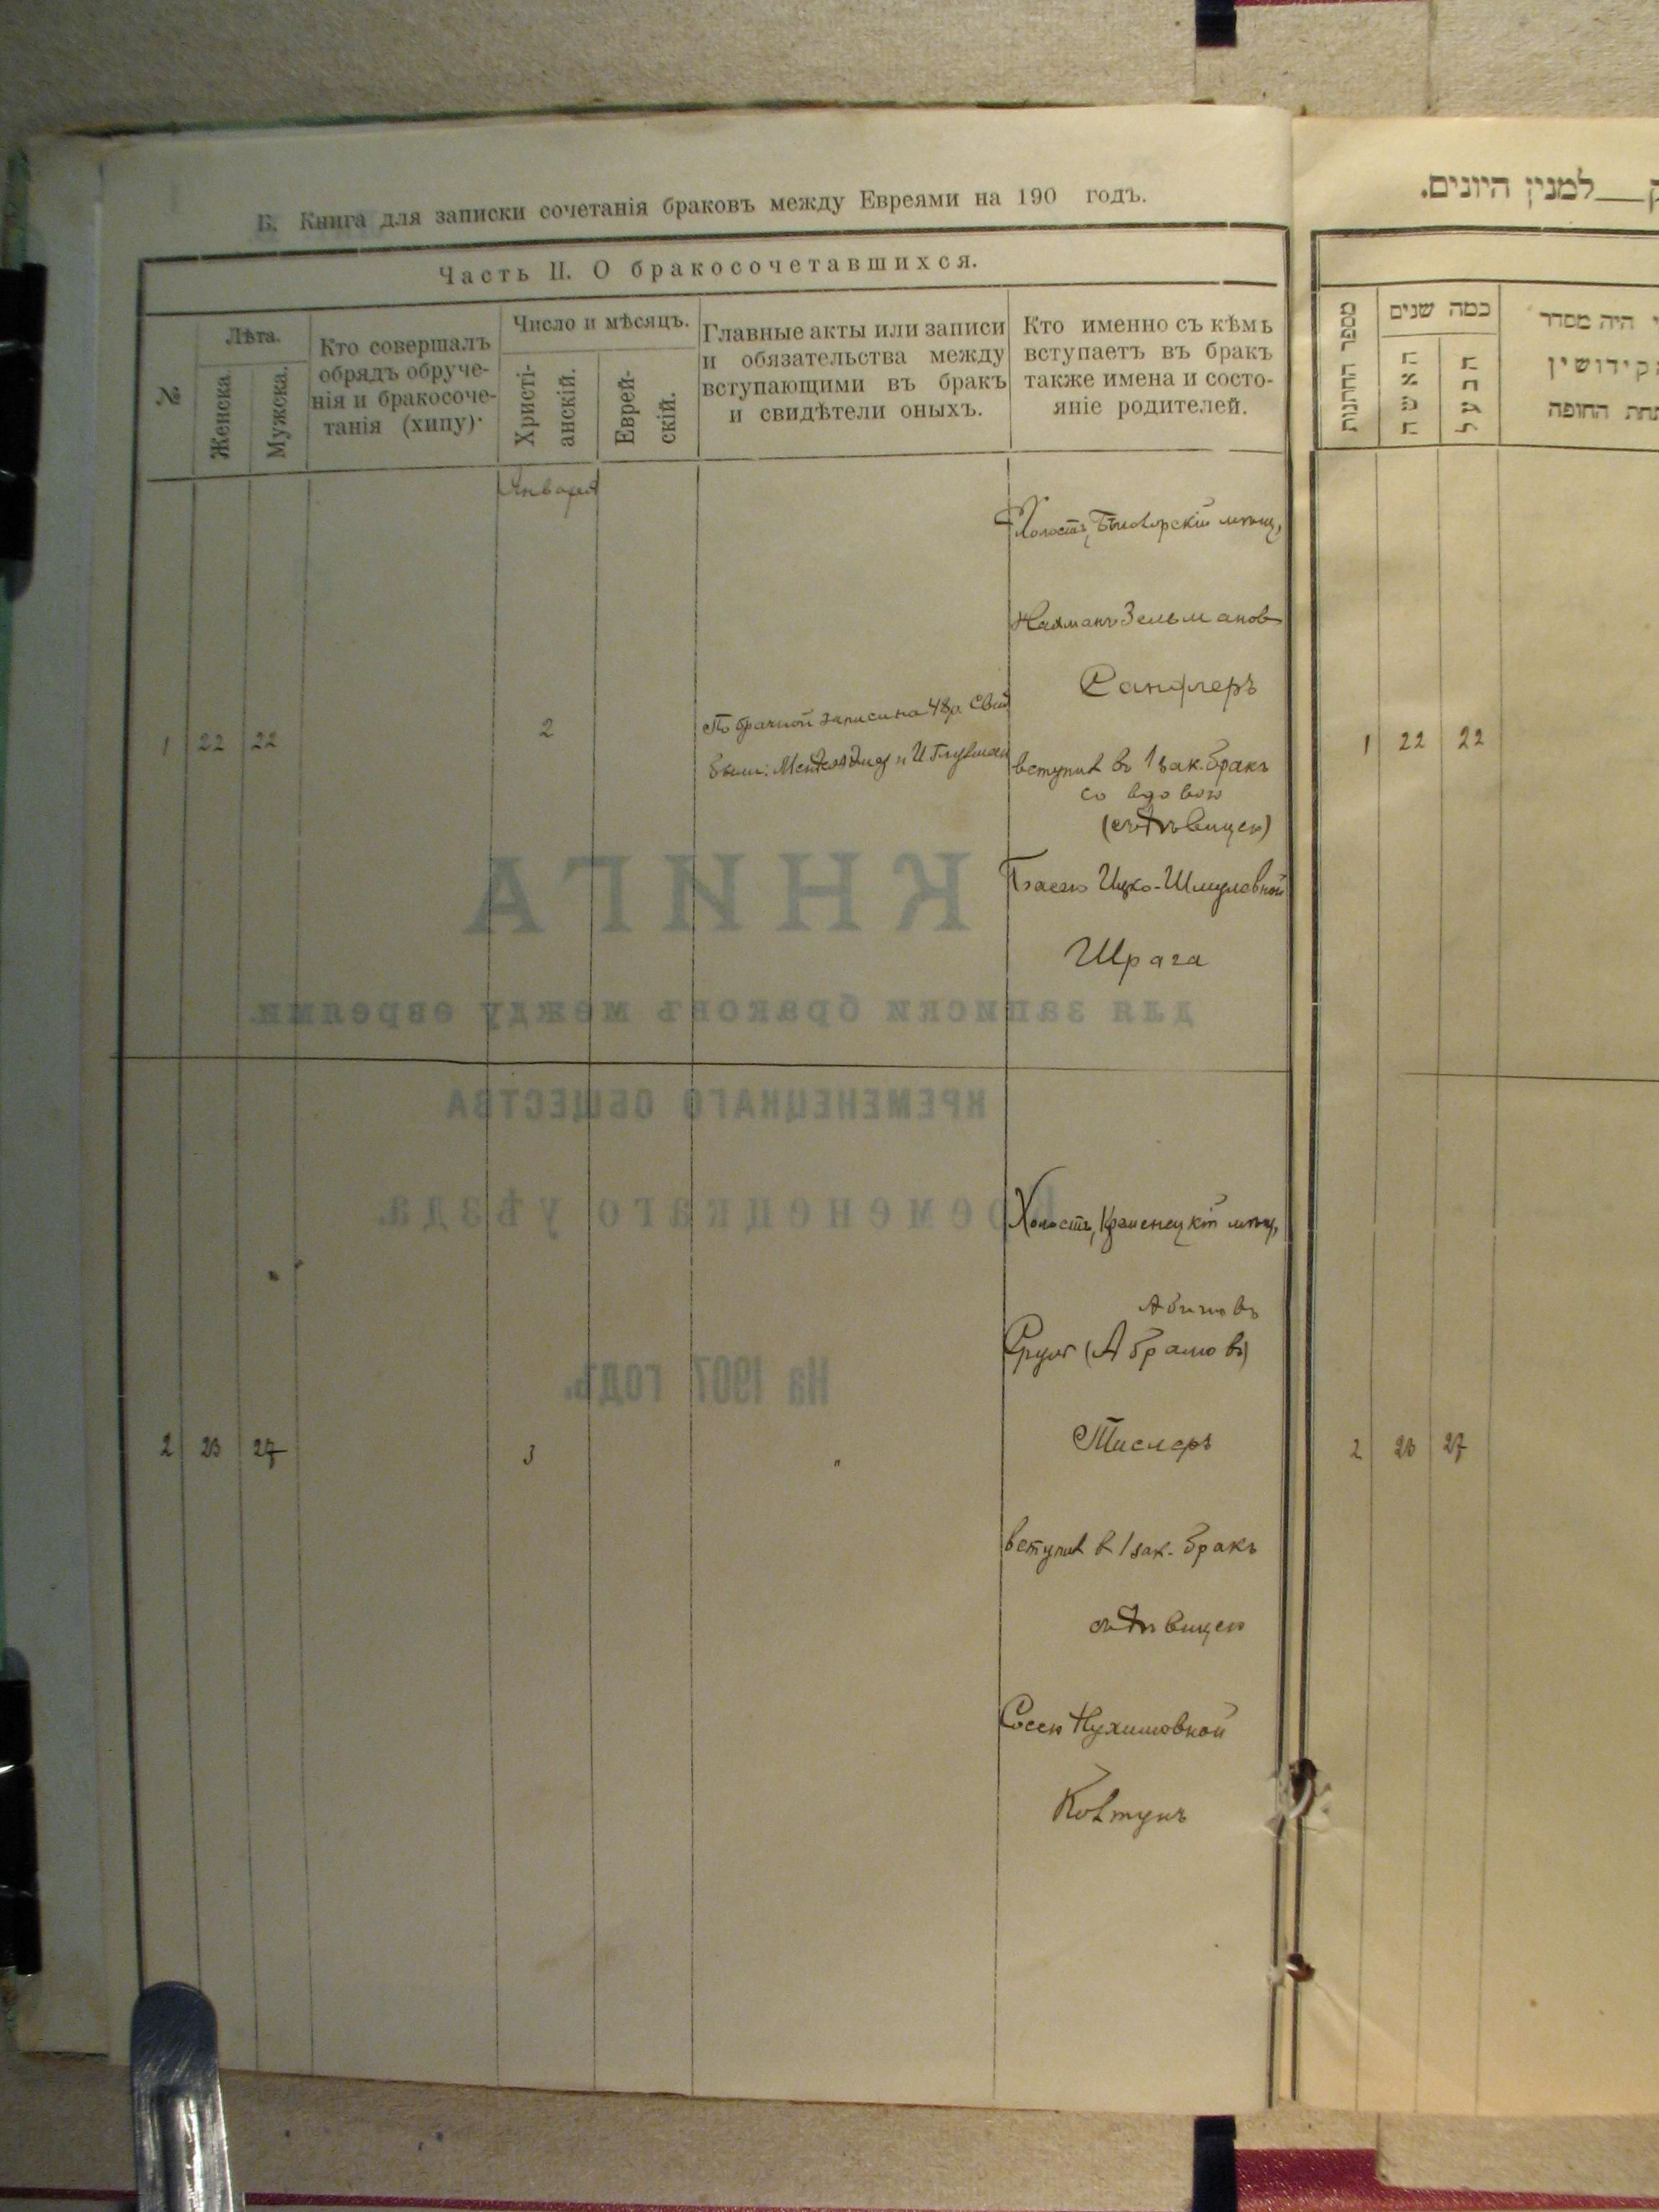 Б. Книга для записки сочетанія браковъ между Евреями на 190 годъ.
Часть II. О бракосочетавшихся.
№
Лѣта.
Женска
Мужска.
Кто совершалъ
обрядъ обруче-
нія и бракосоче-
танія (хипу)·
Число и мѣсяцъ.
Христі-
анскій.
Еврей-
скій.
Главные акты или записи
и обязательства между
вступающими въ бракъ
и свидѣтели оныхъ.
Кто именно съ кѣмъ
вступаетъ въ бракъ
также имена и состо-
яніе родителей.
Января
Холостъ, мѣщ,
Нахманъ Зельманов
Санфлеръ
1 22 22
2
По брачной записи на 48 р. Свид
были: и И Глузман
вступил въ 1 зак. бракъ
со вдовою
(съ дѣвицею)
Басею Ицко-Шмулевной
Шрага
Холостъ, Кременецкій мѣщ,
Абимовъ
Сруль (Абрамовъ)
Тислеръ
2 23 27
3
"
вступил в 1 зак. бракъ
съ дѣвицею
Сосею Нухимовной
Ковтунъ
КНИГА
для записки браковъ между евреями.
КРЕМЕНЕЦКАГО ОБЩЕСТВА
Кременецкаго уѣзда.
На 1907 годъ.
למנין היונים.
מספר החתנות
כמה שנים
האשה
הבעל
היה מסדר
קידושין
תחת החופה
1 22 22
2 23 27